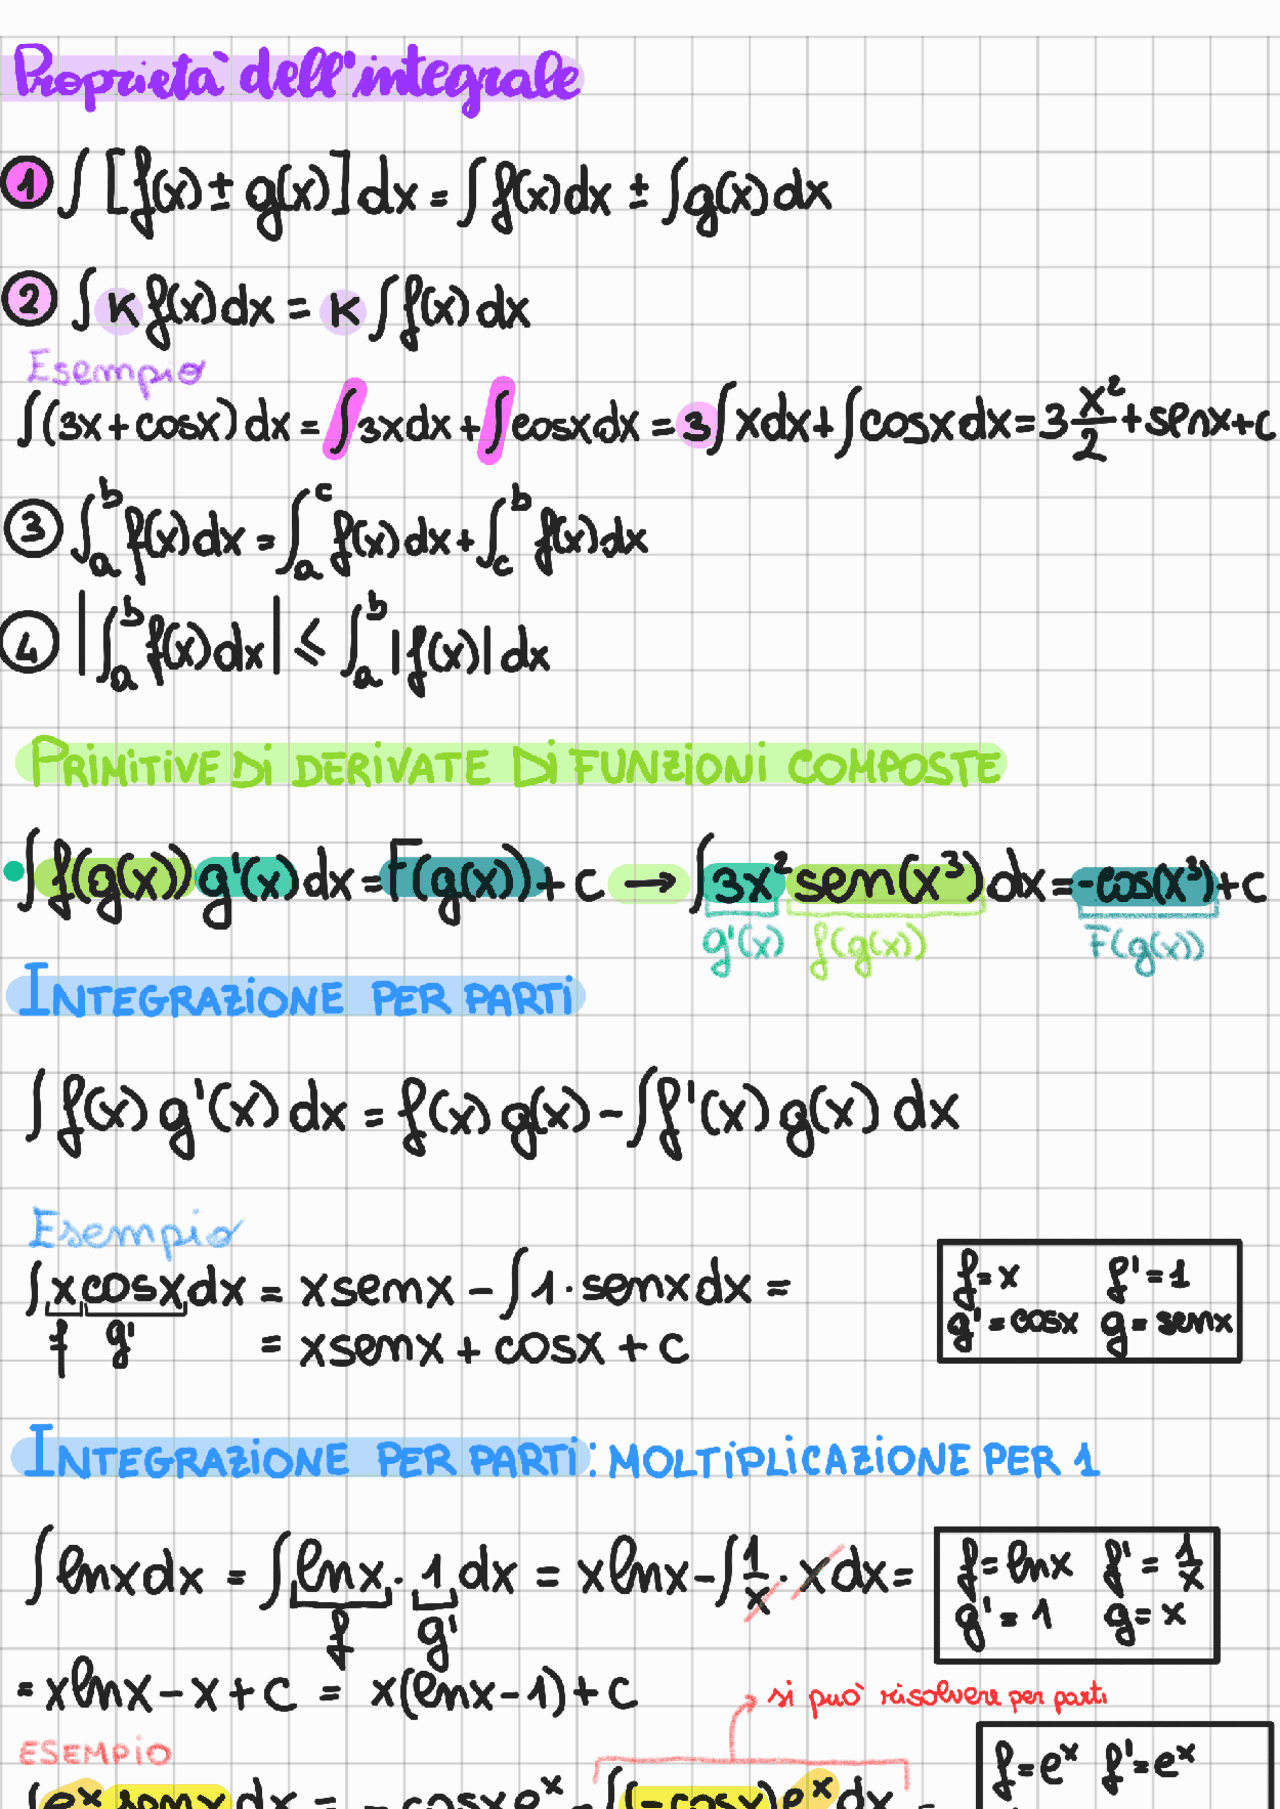 Proprietà dell'integrale
① ∫ [f(x) ± g(x)] dx = ∫ f(x) dx ± ∫ g(x) dx
② ∫ K f(x) dx = K ∫ f(x) dx
Esempio
∫ (3x + cosx) dx = ∫ 3x dx + ∫ cosx dx = 3 ∫ x dx + ∫ cosx dx = 3 x²/2 + senx + c
③ ∫_a^b f(x) dx = ∫_a^c f(x) dx + ∫_c^b f(x) dx
④ |∫_a^b f(x) dx| ⩽ ∫_a^b |f(x)| dx
PRIMITIVE Di DERIVATE Di FUNZIONI COMPOSTE
• ∫ f(g(x)) g'(x) dx = F(g(x)) + c → ∫ 3x² sen(x³) dx = -cos(x³) + c
g'(x) f(g(x)) F(g(x))
INTEGRAZIONE PER PARTI
∫ f(x) g'(x) dx = f(x) g(x) - ∫ f'(x) g(x) dx
Esempio
∫ x cosx dx = x senx - ∫ 1 · senx dx =
f g'
= x senx + cosx + c
f = x f' = 1
g' = cosx g = senx
INTEGRAZIONE PER PARTI: MOLTIPLICAZIONE PER 1
∫ lnx dx = ∫ lnx · 1 dx = x lnx - ∫ 1/x · x dx =
f g'
f = lnx f' = 1/x
g' = 1 g = x
= x lnx - x + c = x(lnx - 1) + c
si può risolvere per parti
ESEMPIO
f = eˣ f' = eˣ
∫ eˣ senx dx = -cosx eˣ - ∫ (-cosx) eˣ dx =